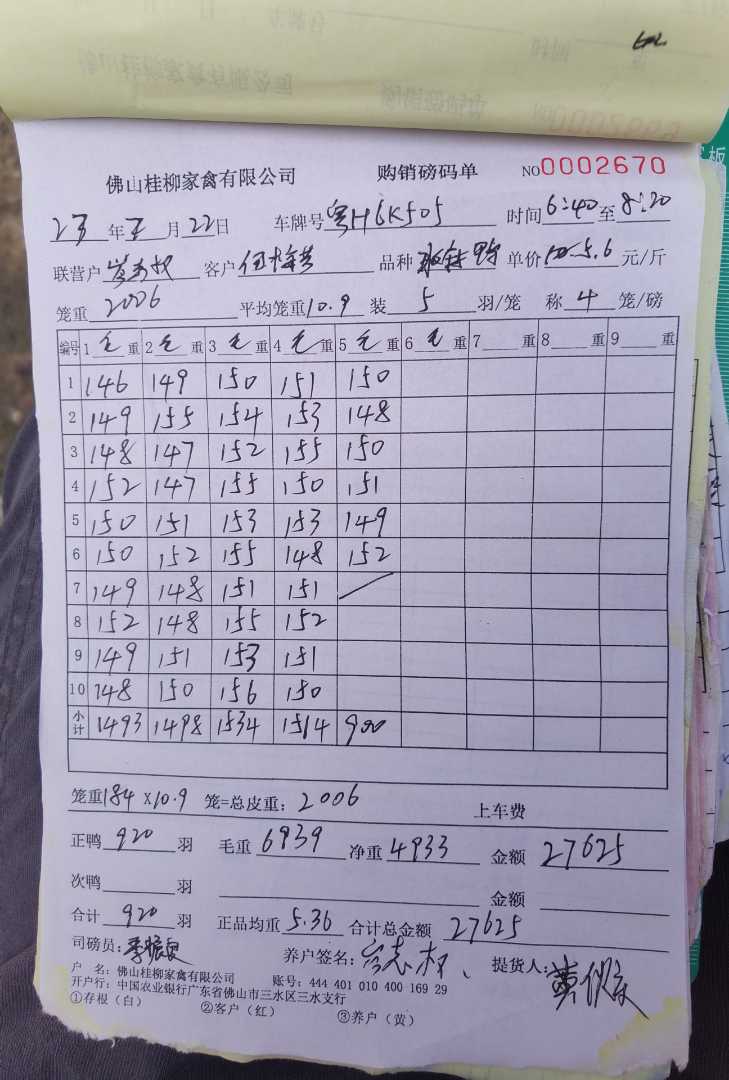 佛山桂柳家禽有限公司 购销磅码单 NO0002670
23年5月22日 车牌号粤H6K505 时间6:40至8:20
联营户 客户伍 品种 单价5.6元/斤
笼重2006 平均笼重10.9装5羽/笼 称4笼/磅
编号 1毛重 2毛重 3毛重 4毛重 5毛重 6毛重 7重 8重 9重
1 146 149 150 151 150
2 149 155 154 153 148
3 148 147 152 155 150
4 152 147 155 150 151
5 150 151 153 153 149
6 150 152 155 148 152
7 149 148 151 151
8 152 148 155 152
9 149 151 153 151
10 148 150 156 150
小计 1493 1498 1534 1514 900
笼重184×10.9 笼=总皮重:2006 上车费
正鸭920羽 毛重6939净重4933 金额27625
次鸭羽 金额
合计920羽 正品均重5.36合计总金额27625
司磅员:李振 养户签名:志权 提货人:黄
户 名:佛山桂柳家禽有限公司 账号:444 401 010 400 169 29
开户行:中国农业银行广东省佛山市三水区三水支行
①存根(白) ②客户(红) ③养户(黄)